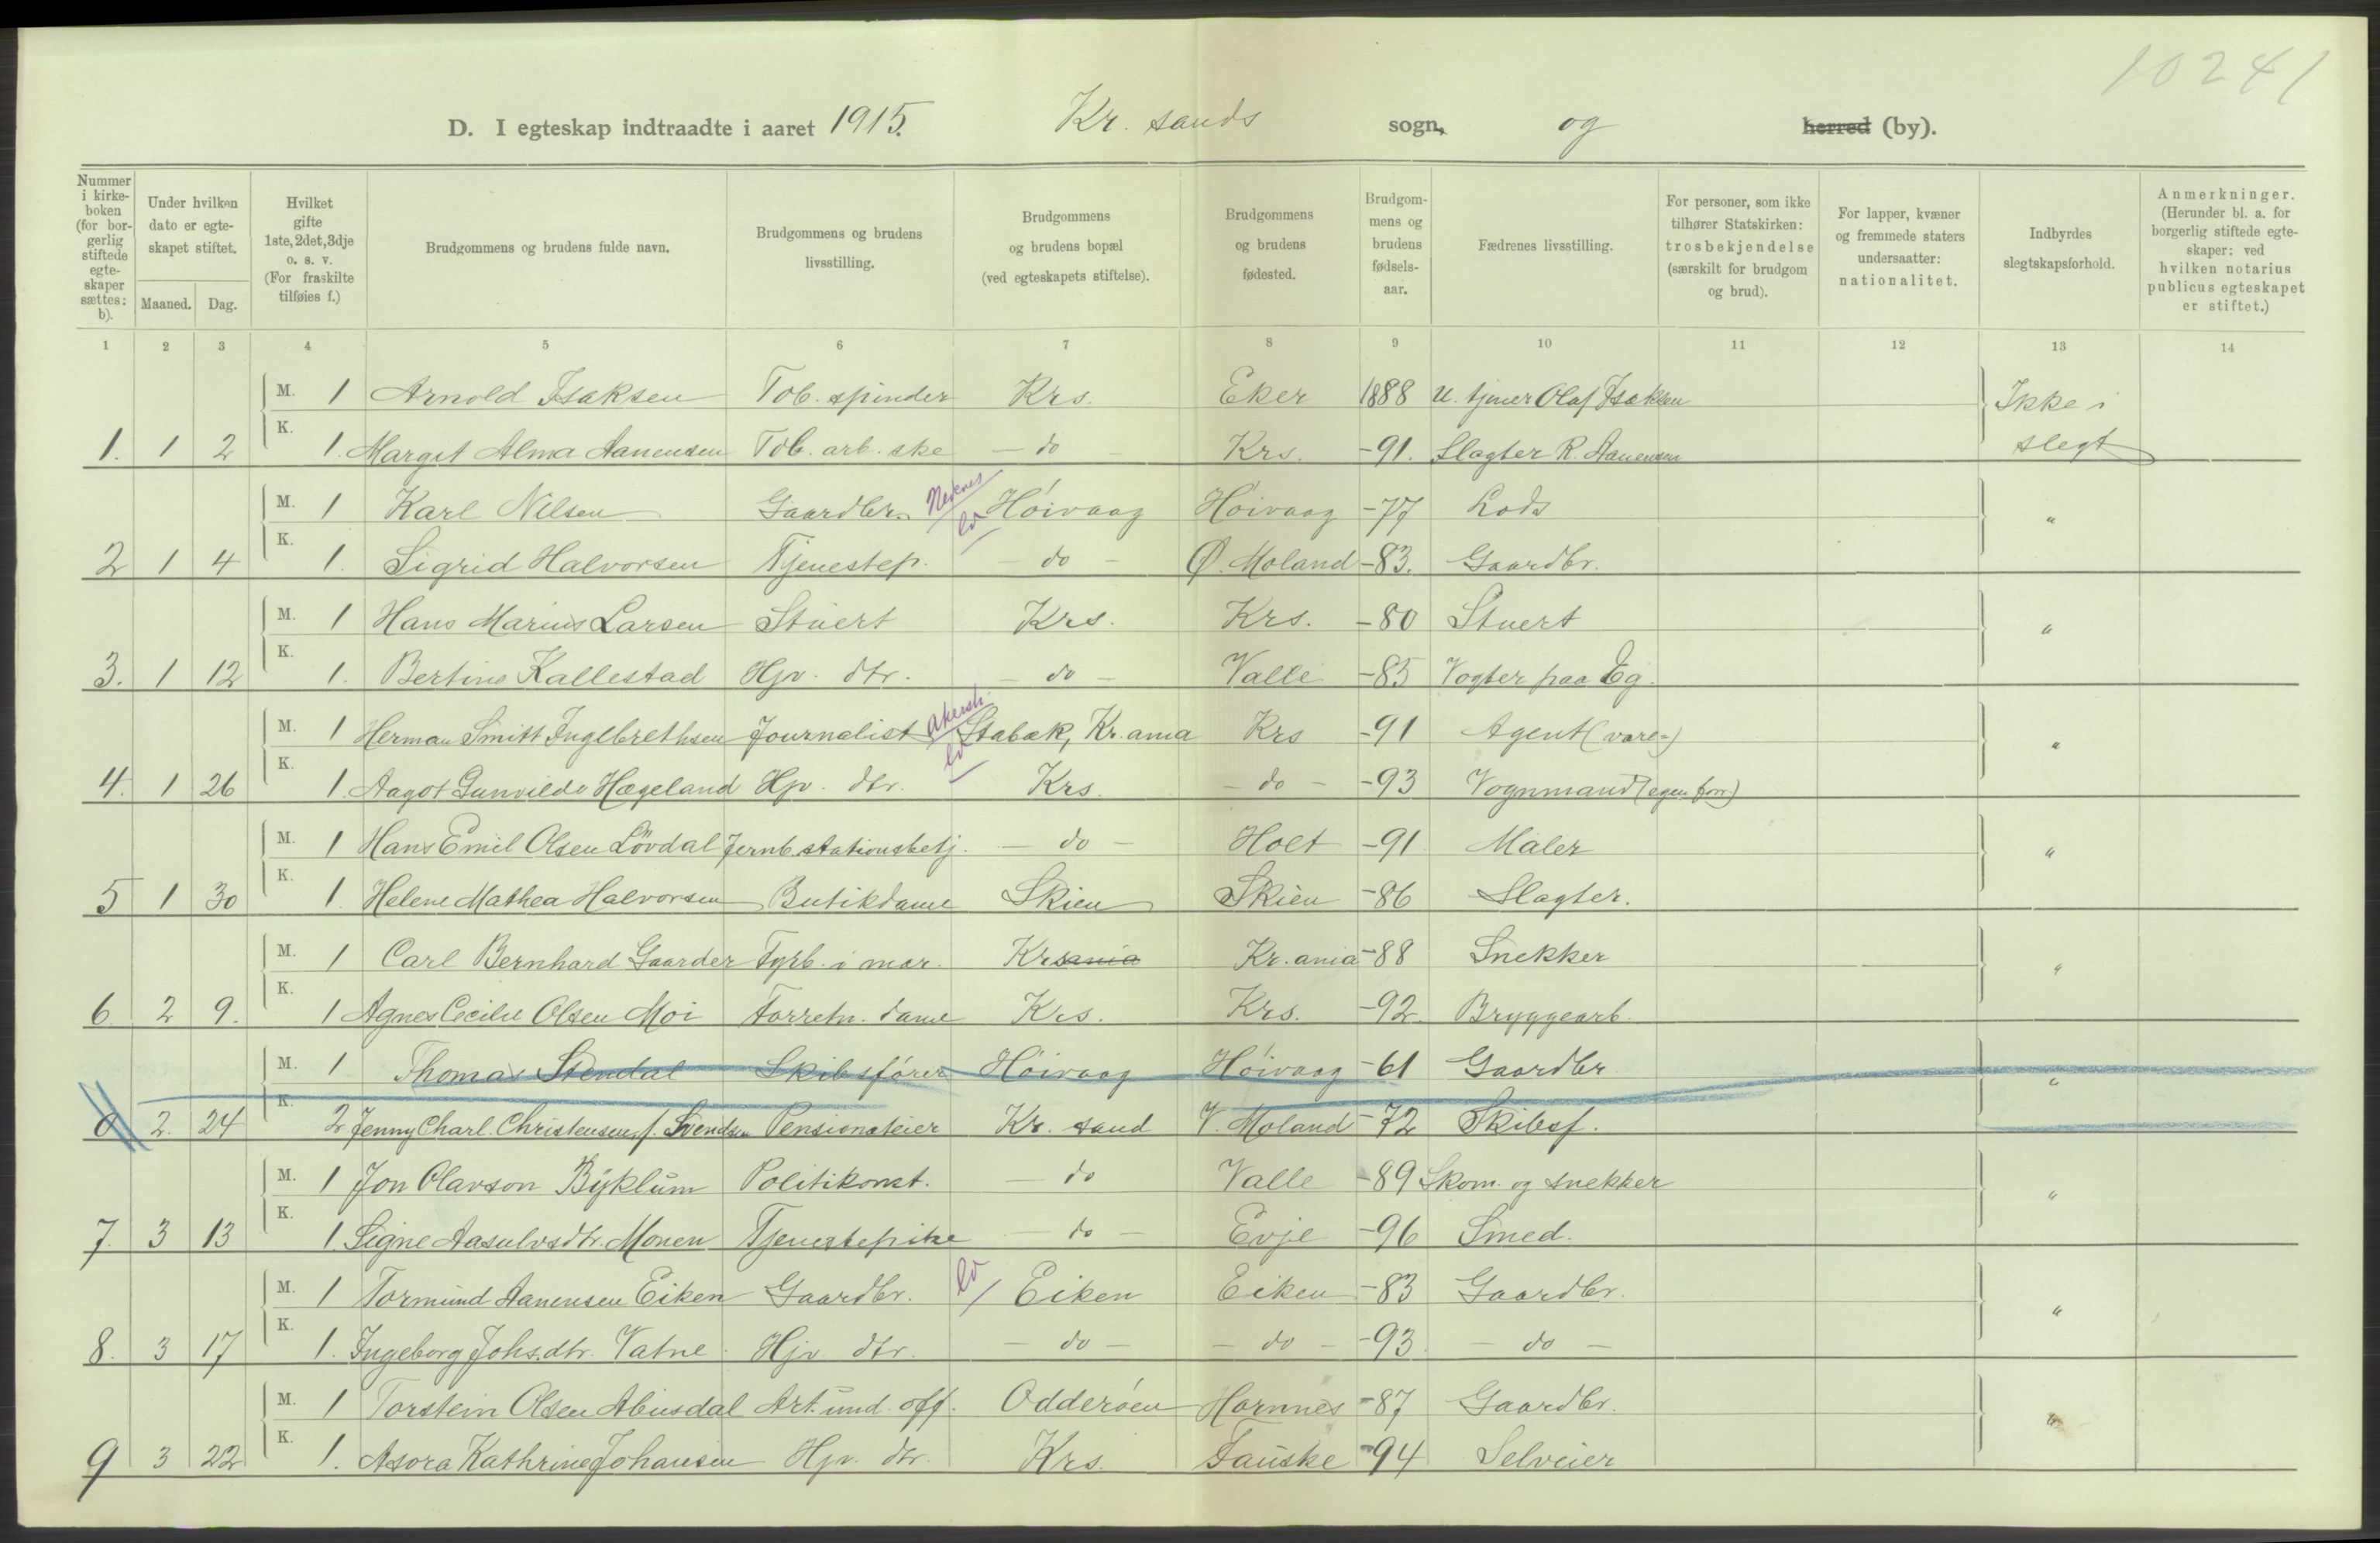 10241
D. I egteskap indtraadte i aaret 1915. Kr. sands sogn, og herred (by).
Nummer i kirkeboken (for borgerlig stiftede egteskaper sættes: b).
Under hvilken dato er egteskapet stiftet.
Maaned. Dag.
Hvilket gifte 1ste, 2det, 3dje o. s. v. (For fraskilte tilføies f.)
Brudgommens og brudens fulde navn.
Brudgommens og brudens livsstilling.
Brudgommens og brudens bopæl (ved egteskapets stiftelse).
Brudgommens og brudens fødested.
Brudgommens og brudens fødselsaar.
Fædrenes livsstilling.
For personer, som ikke tilhører Statskirken: trosbekjendelse (særskilt for brudgom og brud).
For lapper, kvæner og fremmede staters undersaatter: nationalitet.
Indbyrdes slegtskapsforhold.
Anmerkninger. (Herunder bl. a. for borgerlig stiftede egteskaper: ved hvilken notarius publicus egteskapet er stiftet.)
1 2 3 4 5 6 7 8 9 10 11 12 13 14
M. 1 Arnold Isaksen Tob. spinder Krs. Eker 1888 U. tjener Olaf Isaksen Ikke i
1. 1 2 K. 1. Margit Alma Aanensen Tob. arb. ske – do – Krs. -91. Slagter R. Aanensen slegt
M. 1 Karl Nilsen Gaardbr. Nedenes Høivaag Høivaag -77 Lods "
2 1 4 K. 1. Sigrid Halvorsen Tjenestep. – do – Ø. Moland -83. Gaardbr.
M. 1 Hans Marius Larsen Stuert Krs. Krs. -80 Stuert "
3. 1 12 K. 1. Bertine Kallestad Hjv. dtr. – do – Valle -85 Vogter paa Eg.
M. 1 Herman Smitt Ingebrethsen Journalist Akersh. Stabæk, Kr.ania Krs -91 Agent (vare-) "
4. 1 26 K. 1. Aagot Gunvilde Hægeland Hjv. dtr. Krs. – do – -93 Vognmand (egen forr)
M. 1 Hans Emil Olsen Løvdal Jernb. stationsbetj. – do – Holt -91 Maler "
5 1 30 K. 1. Helene Mathea Halvorsen Butikdame Skien Skien -86 Slagter.
M. 1 Carl Bernhard Gaarder Fyrb. i mar. Krsania Kr.ania -88 Snekker "
6 2 9. K. 1 Agnes Cecilie Olsen Moi Forretn. dame Krs. Krs. -92. Bryggearb.
M. 1 Thomas Stendal Skibsfører Høivaag Høivaag -61 Gaardbr "
0 2. 24 K. 2 Jenny Charl. Christensen, f. Svendsen Pensionateier Kr. sand V. Moland -72 Skibsf.
M. 1 Jon Olavson Byklum Politikonst. – do Valle -89 Skom. og snekker "
7. 3 13 K. 1. Signe Aasulvsdtr. Monen Tjenestepike – do – Evje -96 Smed.
M. 1 Tormund Aanensen Eiken Gaardbr. Eiken Eiken -83 Gaardbr. "
8. 3 17 K. 1. Ingeborg Johs.dtr. Vatne Hjv. dtr. – do – – do – -93 – do –
M. 1 Torstein Olsen Abusdal Art. und. off. Odderøen Hornnes -87 Gaardbr. "
9 3 22 K. 1. Asora Kathrine Johansen Hjv. dtr. Krs. Fauske -94 Selveier